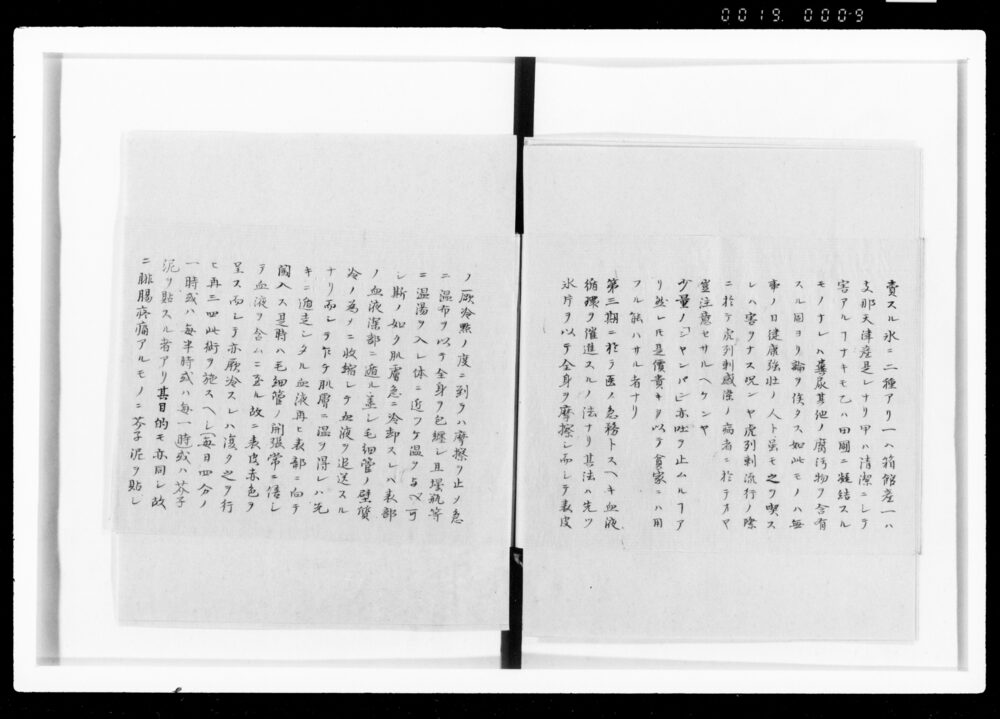 0019 0009
賣スル氷ニ二種アリ一ハ箱館産一ハ
支那天津産是レナリ甲ハ清潔ニシテ
害アルヿナキモ乙ハ田圃ニ凝結スル
モノナレハ糞尿其他ノ腐汚物ヲ含有
スル固ヨリ論ヲ俟タス如此モノハ無
事ノ日健康強壮ノ人ト虽モ之ヲ喫ス
レハ害ヲナス况ンヤ虎列剌流行ノ際
ニ於テ虎列剌感染ノ病者ニ於テオヤ
豈注意セサルヘケンヤ
少量ノ「シヤンパン」亦吐ヲ止ムルヿア
リ然レ𪜈是價貴キヲ以テ貧家ニハ用
フル能ハサル者ナリ
第三期ニ於テ医ノ急務トスヘキ血液
循環ヲ催進スルノ法ナリ其法ハ先ツ
氷片ヲ以テ全身ヲ摩擦シ而シテ表皮
ノ厥冷熱ノ度ニ到ラハ摩擦ヲ止メ急
ニ温布ヲ以テ全身ヲ包纏シ且壜瓶等
ニ温湯ヲ入レ体ニ近ツケ温ヲ与ヘ可
シ斯ノ如ク肌膚急ニ冷却スレハ表部
ノ血液深部ニ遁ル蓋シ毛細管ノ壁質
冷ノ為メニ収縮シテ血液ヲ退送スル
ナリ而シテ乍チ肌膚ニ温ヲ得レハ先
キニ遁走シタル血液再ヒ表部ニ向テ
闖入ス是時ハ毛細管ノ開張常ニ倍シ
テ血液ヲ含ハニ至ル故ニ表皮赤色ヲ
呈ス而シテ亦厥冷スレハ復タ之ヲ行
ヒ再三四此術ヲ施スヘシ毎日四分ノ
一時或ハ毎半時或ハ毎一時或ハ芥子
泥ヲ貼スル者アリ其目的モ亦同シ故
ニ腓腸疼痛アルモノニ芥子泥ヲ貼シ